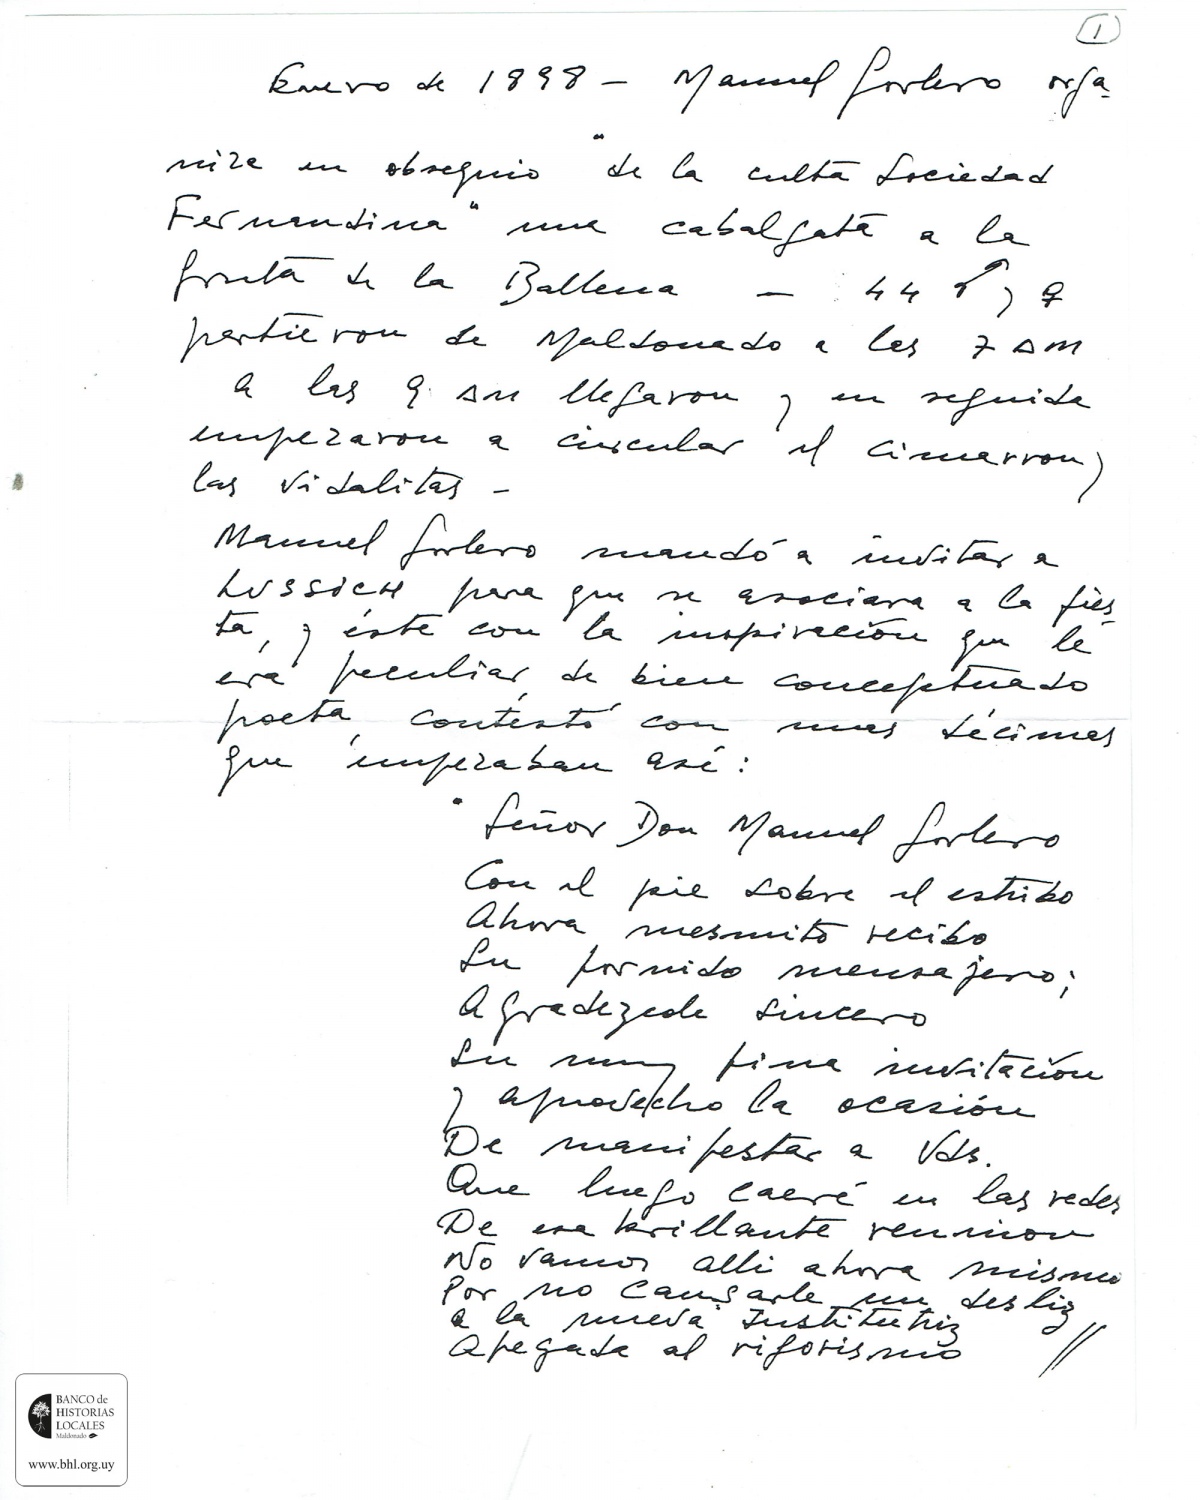 1
Enero de 1898 - Manuel Gorlero orga-
niza en obsequio "de la culta Sociedad
Fernandina" una cabalgata a la
gruta de la Ballena - 44 ♂ y ♀
partieron de Maldonado a las 7 AM
a las 9 AM llegaron y en seguida
empezaron a circular el cimarron y
las vidalitas -
Manuel Gorlero mandó a invitar a
LUSSICH para que se asociara a la fies-
ta, y éste con la inspiración que le
era peculiar, de bien conceptuado
poeta, contestó con unas décimas
que empezaban así:
"Señor Don Manuel Gorlero
Con el pie sobre el estribo
Ahora mesmito recibo
Su fornido mensajero;
Agradezcole sincero
Su muy fina invitación
y aprovecho la ocasión
De manifestar a Vds.
Que luego caeré en las redes
De esa brillante reunion
No vamos alli ahora mismo
Por no causarle un desliz
a la nueva Institutriz
Apegada al rigorismo //
BANCO de
HISTORIAS
LOCALES
Maldonado
www.bhl.org.uy